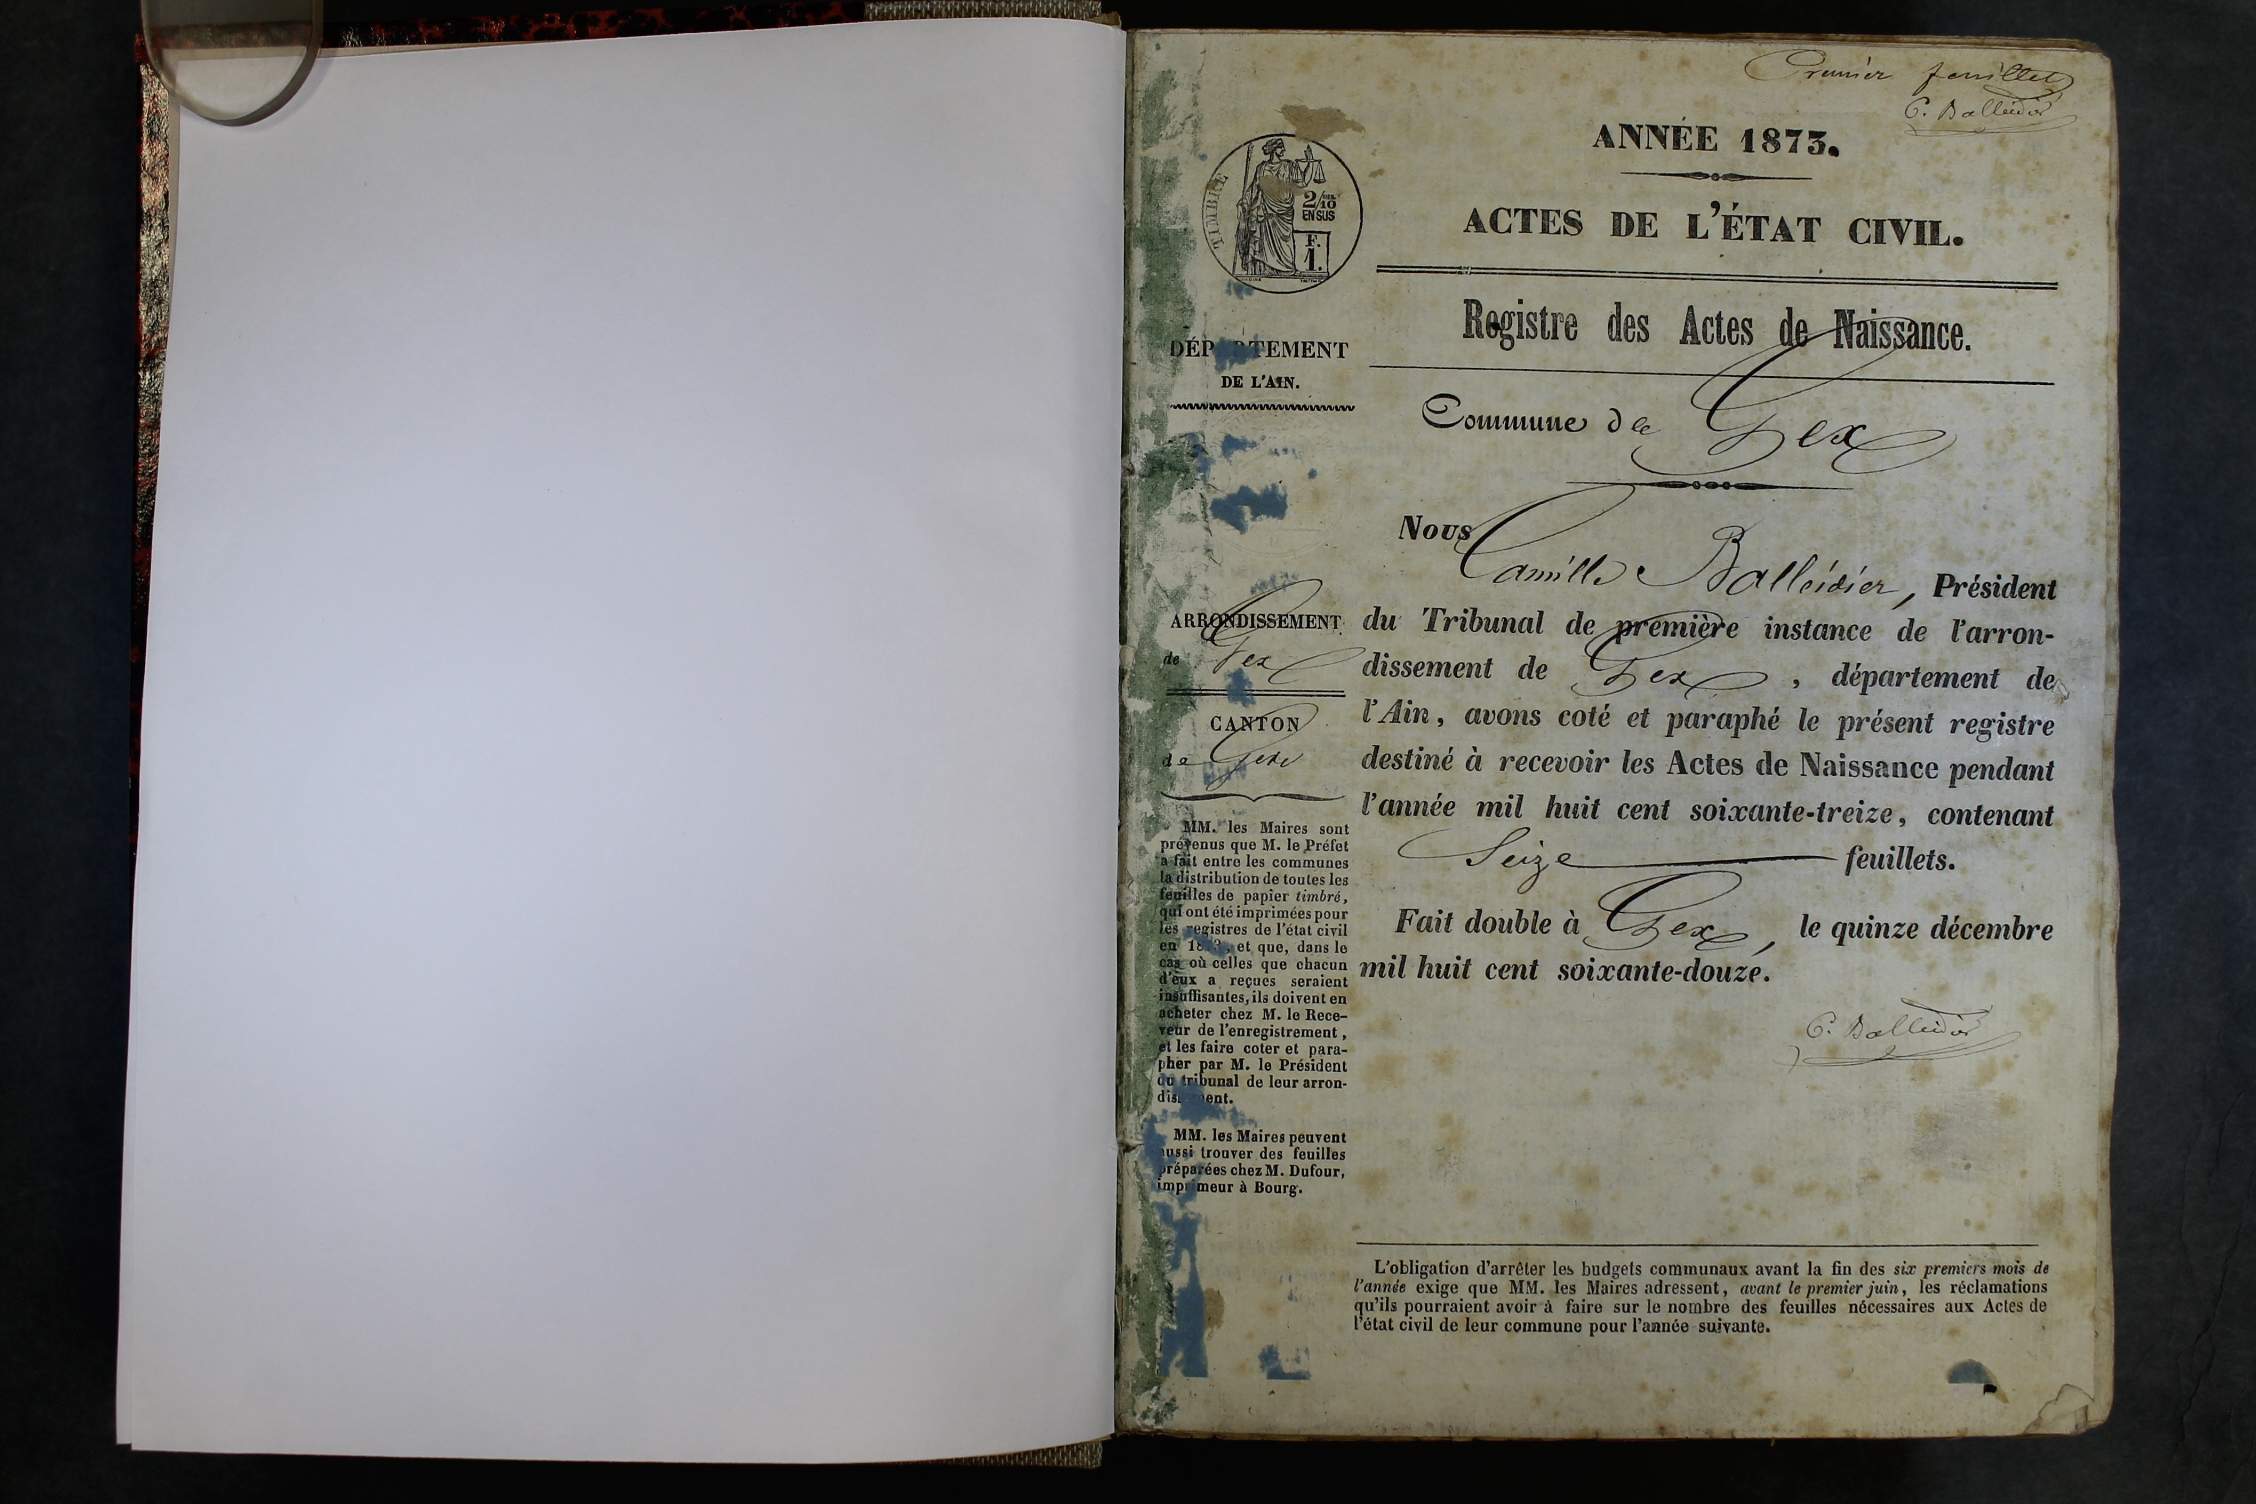 Premier feuillet
C. Balleidier
ANNÉE 1873.
ACTES DE L'ÉTAT CIVIL.
TIMBRE
2/10
EN SUS
F.
1.
Registre des Actes de Naissance.
DÉP TEMENT
DE L'AIN.
Commune de Gex
Nous
Camille Balleidier, Président
du Tribunal de première instance de l'arron-
dissement de Gex, département de
l'Ain, avons coté et paraphé le présent registre
destiné à recevoir les Actes de Naissance pendant
l'année mil huit cent soixante-treize, contenant
Seize feuillets.
Fait double à Gex, le quinze décembre
mil huit cent soixante-douze.
C. Balleidier
ARRONDISSEMENT
de Gex
CANTON
de Gex
MM. les Maires sont
prévenus que M. le Préfet
a fait entre les communes
la distribution de toutes les
feuilles de papier timbré,
qui ont été imprimées pour
les registres de l'état civil
en 1873, et que, dans le
cas où celles que chacun
d'eux a reçues seraient
insuffisantes, ils doivent en
acheter chez M. le Rece-
veur de l'enregistrement,
et les faire coter et para-
pher par M. le Président
du tribunal de leur arron-
dis ent.
MM. les Maires peuvent
aussi trouver des feuilles
préparées chez M. Dufour,
imprimeur à Bourg.
L'obligation d'arrêter les budgets communaux avant la fin des six premiers mois de
l'année exige que MM. les Maires adressent, avant le premier juin, les réclamations
qu'ils pourraient avoir à faire sur le nombre des feuilles nécessaires aux Actes de
l'état civil de leur commune pour l'année suivante.